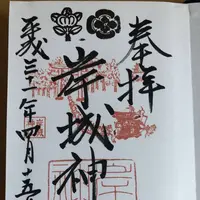 奉拝
岸城神
平成三十一年四月十五